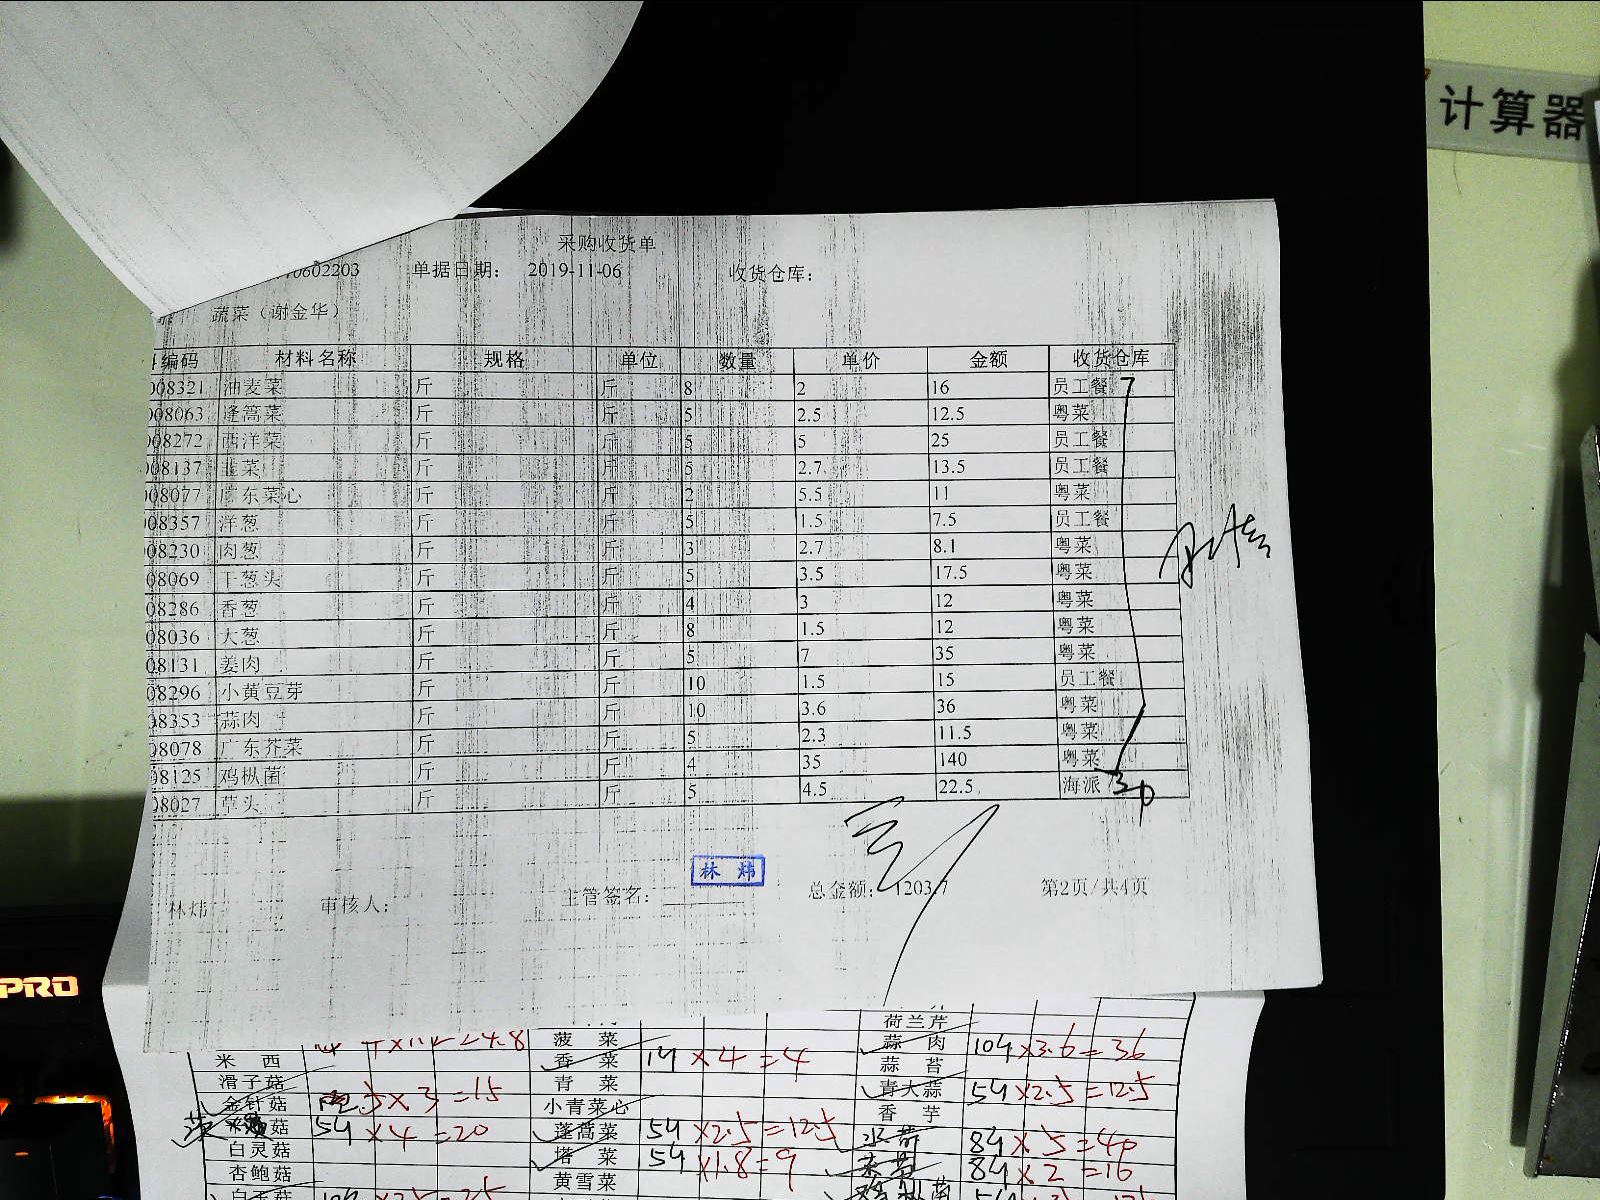 计算器
采购收货单
0602203 单据日期： 2019-11-06 收货仓库：
蔬菜（谢金华）
编码 材料名称 规格 单位 数量 单价 金额 收货仓库
008321 油麦菜 斤 斤 8 2 16 员工餐
08063 蓬篙菜 斤 斤 5 2.5 12.5 粤菜
008272 西洋菜 斤 斤 5 5 25 员工餐
08137 韭菜 斤 斤 5 2.7 13.5 员工餐
08077 广东菜心 斤 斤 2 5.5 11 粤菜
08357 洋葱 斤 斤 5 1.5 7.5 员工餐
08230 肉葱 斤 斤 3 2.7 8.1 粤菜
08069 干葱头 斤 斤 5 3.5 17.5 粤菜
08286 香葱 斤 斤 4 3 12 粤菜
08036 大葱 斤 斤 8 1.5 12 粤菜
08131 姜肉 斤 斤 5 7 35 粤菜
08296 小黄豆芽 斤 斤 10 1.5 15 员工餐
08353 蒜肉 斤 斤 10 3.6 36 粤菜
08078 广东芥菜 斤 斤 5 2.3 11.5 粤菜
08125 鸡枞菌 斤 斤 4 35 140 粤菜
08027 草头 斤 斤 5 4.5 22.5 海派
林炜
林炜 审核人： 主管签名： 总金额： 1203.7 第2页/共4页
PRO
荷兰芹
菠菜 蒜肉 10斤×3.6=36
米西 香菜 1斤×4=4 蒜苔
滑子菇 青菜 青大蒜 5斤×2.5=12.5
金针菇 5×3=15 小青菜心 香芋
菇 5斤×4=20 蓬蒿菜 5斤×2.5=12.5 8斤×5=40
白灵菇 塔菜 5斤×1.8=9 8斤×2=16
杏鲍菇 黄雪菜